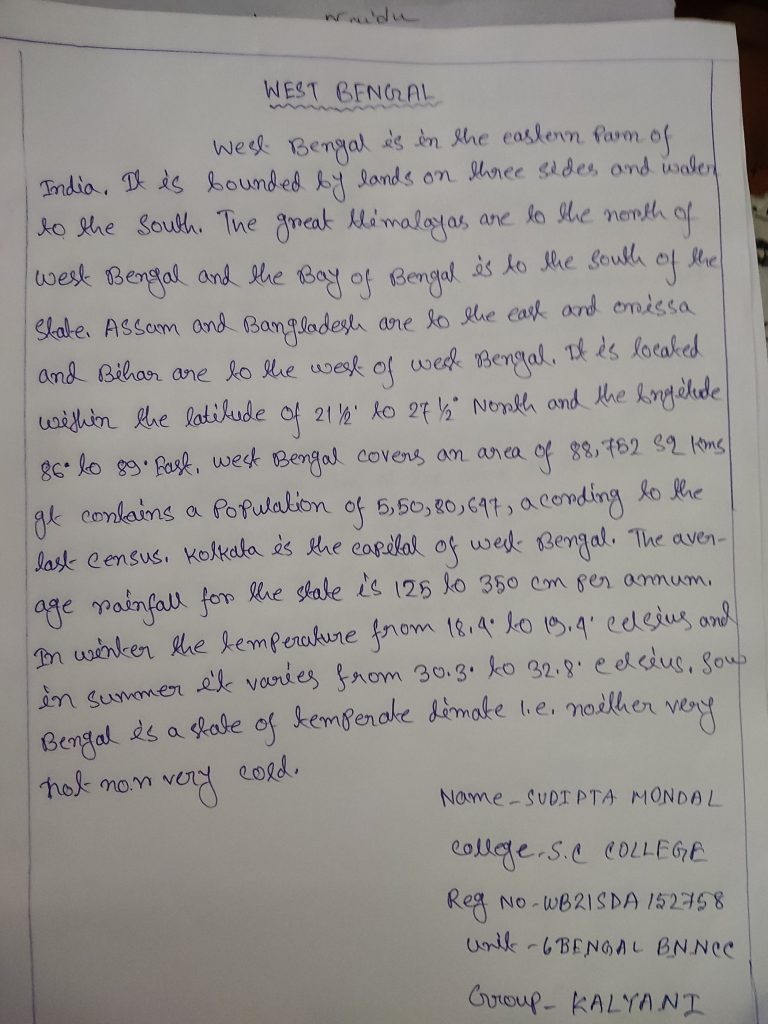 WEST BENGAL
West Bengal is in the eastern Parm of
India. It is bounded by lands on three sides and water
to the South. The great Himalayas are to the north of
west Bengal and the Bay of Bengal is to the South of the
State. Assam and Bangladesh are to the east and orissa
and Bihar are to the west of west Bengal. It is located
within the latitude of 21½° to 27½° North and the longitude
86° to 89° East. West Bengal covers an area of 88,752 SQ Kms
It contains a Population of 5,50,80,647, acording to the
last census. Kolkata is the capital of west Bengal. The aver-
age rainfall for the state is 125 to 350 cm per annum.
In winter the temperature from 18.4° to 19.4° celsius and
in summer it varies from 30.3° to 32.8° celsius. So
Bengal is a state of temperate climate i.e. neither very
hot nor very cold.
Name - SUDIPTA MONDAL
College - S.C COLLEGE
Reg No - WB21SDA152758
Unit - 6 BENGAL BN.NCC
Group - KALYANI